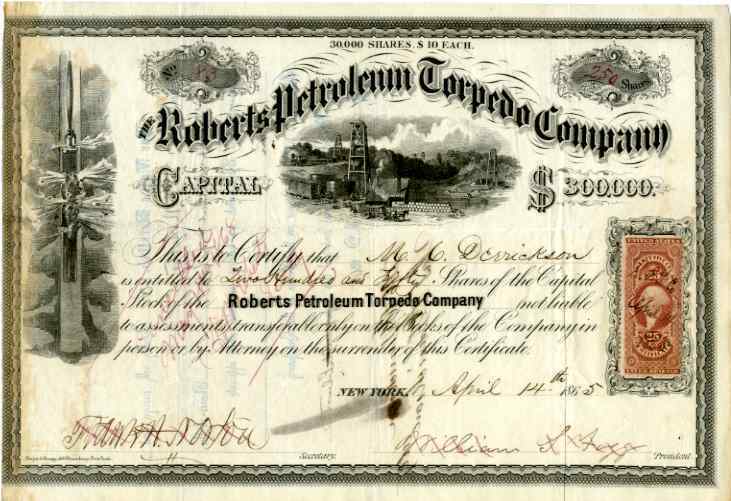 30,000 SHARES. $10 EACH.
No.
250 Shares
THE Roberts Petroleum Torpedo Company
CAPITAL $300,000.
This is to Certify that M. C. Derrickson
is entitled to Two Hundred and Fifty Shares of the Capital
Stock of the Roberts Petroleum Torpedo Company not liable
to assessments, transferable only on the Books of the Company in
person or by Attorney on the surrender of this Certificate.
NEW YORK, April 14th 1865
Secretary.
William
President
25